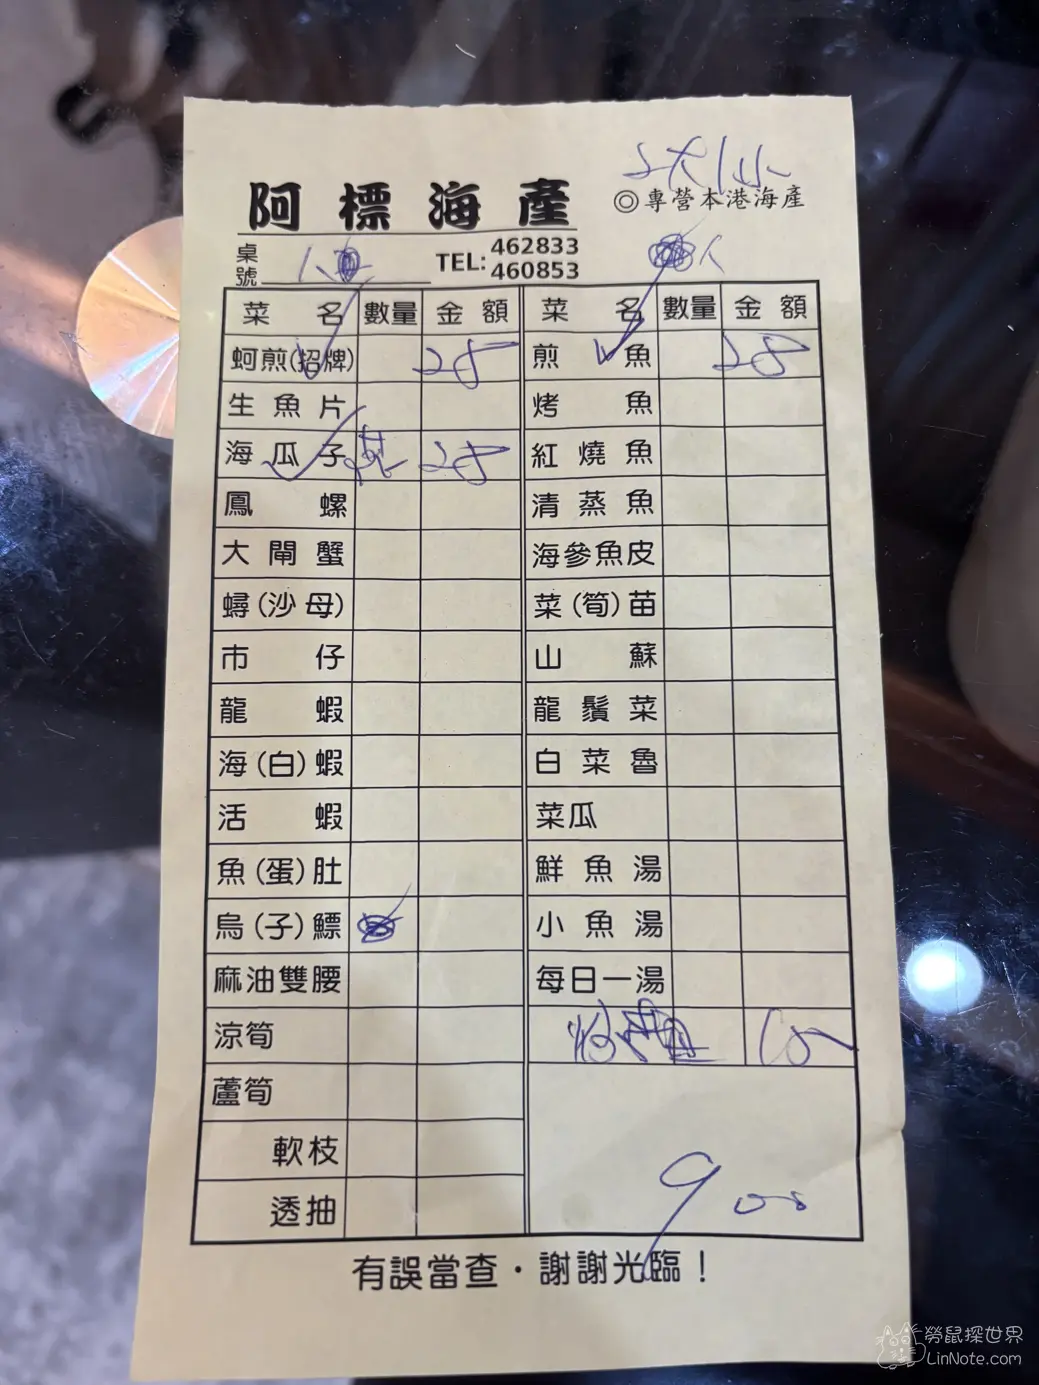 2大1小
阿標海產 ◎專營本港海產
桌號 TEL: 462833 460853
菜名 數量 金額 菜名 數量 金額
蚵煎(招牌) 250 煎魚 250
生魚片 烤魚
海瓜子 250 紅燒魚
鳳螺 清蒸魚
大閘蟹 海參魚皮
蟳(沙母) 菜(筍)苗
市仔 山蘇
龍蝦 龍鬚菜
海(白)蝦 白菜魯
活蝦 菜瓜
魚(蛋)肚 鮮魚湯
烏(子)鰾 小魚湯
麻油雙腰 每日一湯
涼筍
蘆筍
軟枝
透抽
900
有誤當查·謝謝光臨!
勞鼠探世界
LinNote.com